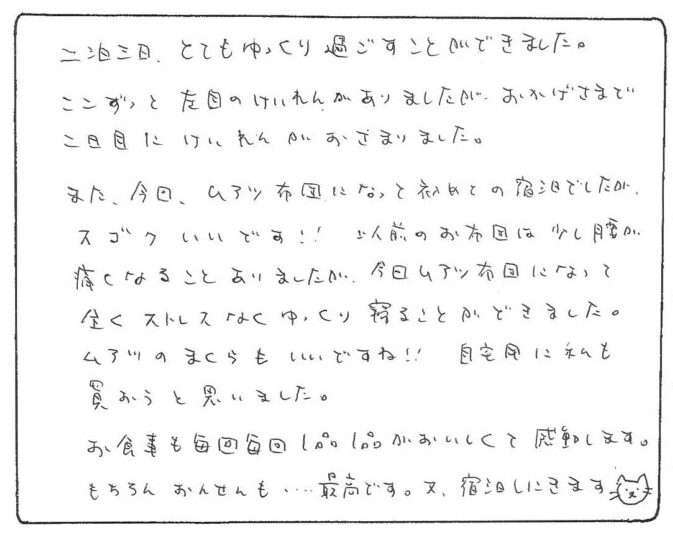 二泊三日、とてもゆっくり過ごすことができました。
ここずっと左目のけいれんがありましたが、おかげさまで
二日目にけいれんがおさまりました。
また、今回、ムアツ布団になって初めての宿泊でしたが、
スゴクいいです!! 以前のお布団は少し腰が
痛くなることありましたが、今回ムアツ布団になって
全くストレスなくゆっくり寝ることができました。
ムアツのまくらもいいですね!! 自宅用に私も
買おうと思いました。
お食事も毎回毎回1品1品がおいしくて感動します。
もちろんおんせんも・・・・最高です。又、宿泊しにきます